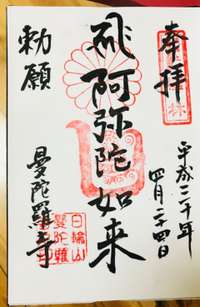 奉拝
平成三十年
四月二十四日
飛阿弥陀如来
勅願
曼陀羅寺
日輪山